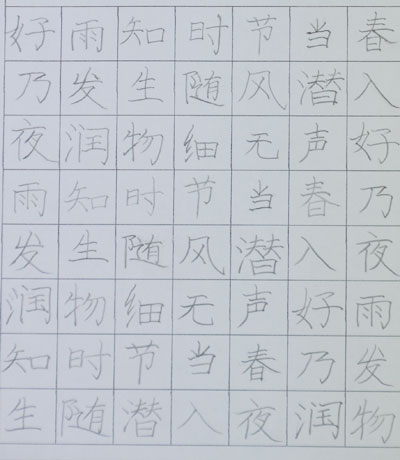 好雨知时节当春
乃发生随风潜入
夜润物细无声好
雨知时节当春乃
发生随风潜入夜
润物细无声好雨
知时节当春乃发
生随潜入夜润物